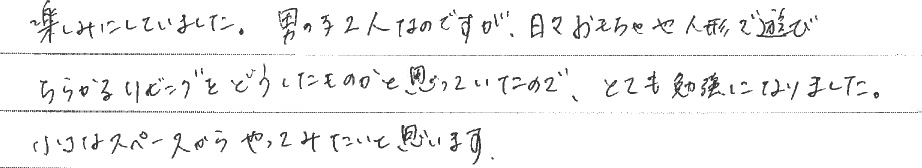 楽しみにしていました。男の子2人なのですが、日々おもちゃや人形で遊び
ちらかるリビングをどうしたものかと思っていたので、とても勉強になりました。
小さなスペースからやってみたいと思います.